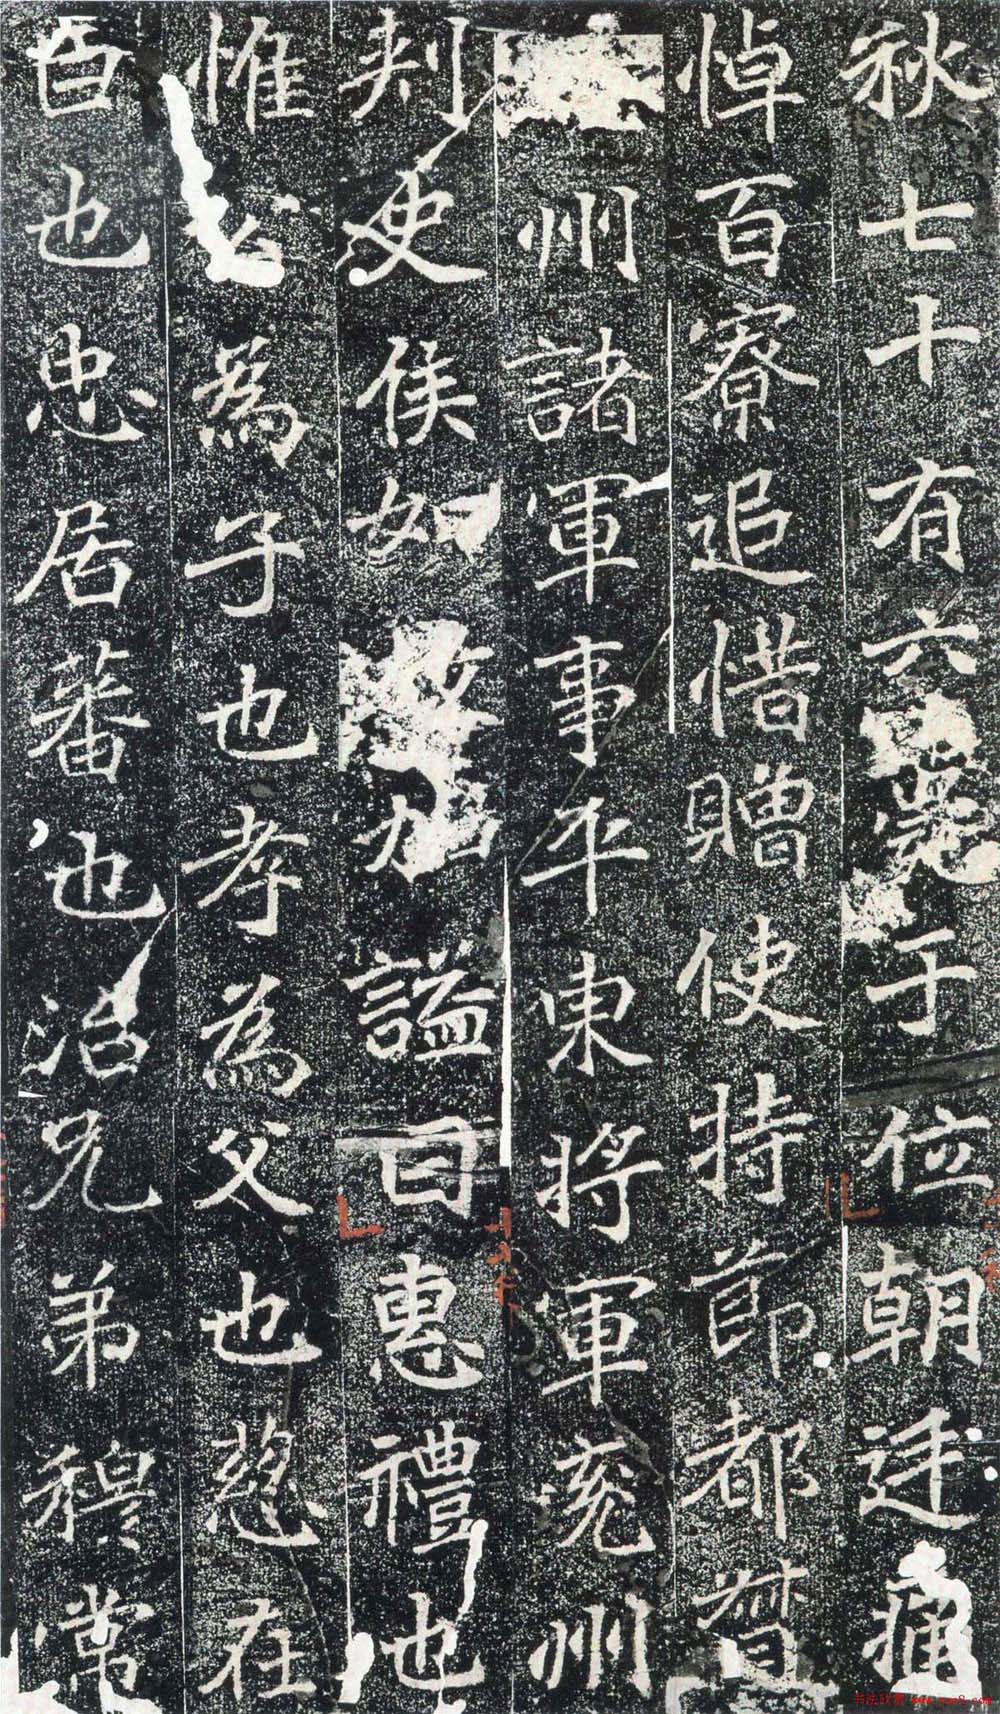 秋七十有六薨于位朝廷痛
悼百寮追惜贈使持節都督
州諸軍事平東將軍兗州
刾史侯如故加謚曰惠禮也
惟公為子也孝為父也慈在
臣也忠居蕃也治兄弟穆常